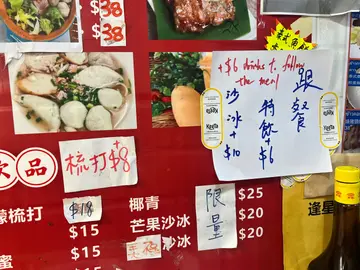 $38
$38
+$6 drinks to following
the meal
跟餐
特飲+$6
沙冰+$10
KEETA
KEETA
飲品
梳打+$8
檬梳打
$18
$15
$15
椰青
$25
芒果沙冰
$20
沙冰
$20
限量
逢星